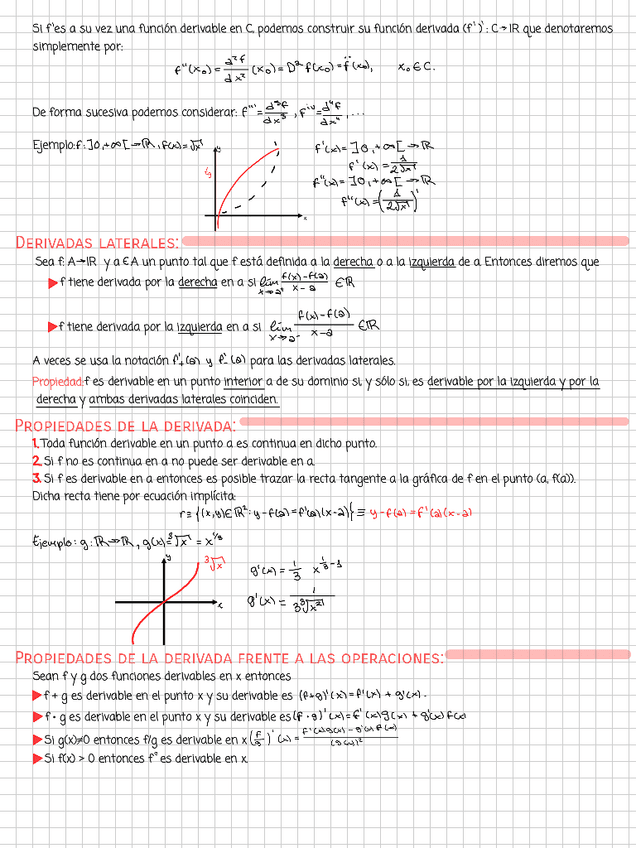 Si f'es a su vez una función derivable en C, podemos construir su función derivada (f')': C→IR que denotaremos
simplemente por:
f''(x₀) = d²f/dx² (x₀) = D²f(x₀) = f̈(x₀), x₀ ∈ C.
De forma sucesiva podemos considerar: f''' = d³f/dx³, f^iv = d⁴f/dx⁴, ...
Ejemplo: f: ]0,+∞[→ℝ, f(x)=√x
f'(x)= ]0,+∞[→ℝ
f'(x) = 1/2√x
f''(x)= ]0,+∞[→ℝ
f''(x) = (1/2√x)'
y
x
DERIVADAS LATERALES:
Sea f: A→IR y a ∈ A un punto tal que f está definida a la derecha o a la izquierda de a Entonces diremos que
▶ f tiene derivada por la derecha en a si lim x→a⁺ f(x)-f(a)/x-a ∈ℝ
▶ f tiene derivada por la izquierda en a si lim x→a⁻ f(x)-f(a)/x-a ∈ℝ
A veces se usa la notación f'₊(a) y f'₋(a) para las derivadas laterales.
Propiedad: f es derivable en un punto interior a de su dominio si, y sólo si, es derivable por la izquierda y por la
derecha y ambas derivadas laterales coinciden.
PROPIEDADES DE LA DERIVADA:
1. Toda función derivable en un punto a es continua en dicho punto.
2. Si f no es continua en a no puede ser derivable en a.
3. Si f es derivable en a entonces es posible trazar la recta tangente a la gráfica de f en el punto (a, f(a)).
Dicha recta tiene por ecuación implícita:
r ≡ {(x,y)∈ℝ²: y-f(a)=f'(a)(x-a)} ≡ y-f(a)=f'(a)(x-a)
Ejemplo: g: ℝ→ℝ, g(x)=³√x = x^1/3
y
³√x
x
g'(x) = 1/3 x^(1/3-1)
g'(x) = 1/3³√x²
PROPIEDADES DE LA DERIVADA FRENTE A LAS OPERACIONES:
Sean f y g dos funciones derivables en x entonces
▶ f + g es derivable en el punto x y su derivada es (f+g)'(x)=f'(x) + g'(x).
▶ f · g es derivable en el punto x y su derivada es (f·g)'(x)=f'(x)g(x) + g'(x)f(x)
▶ Si g(x)≠0 entonces f/g es derivable en x (f/g)'(x) = f'(x)g(x) - g'(x)f(x)/(g(x))²
▶ Si f(x) > 0 entonces f^g es derivable en x